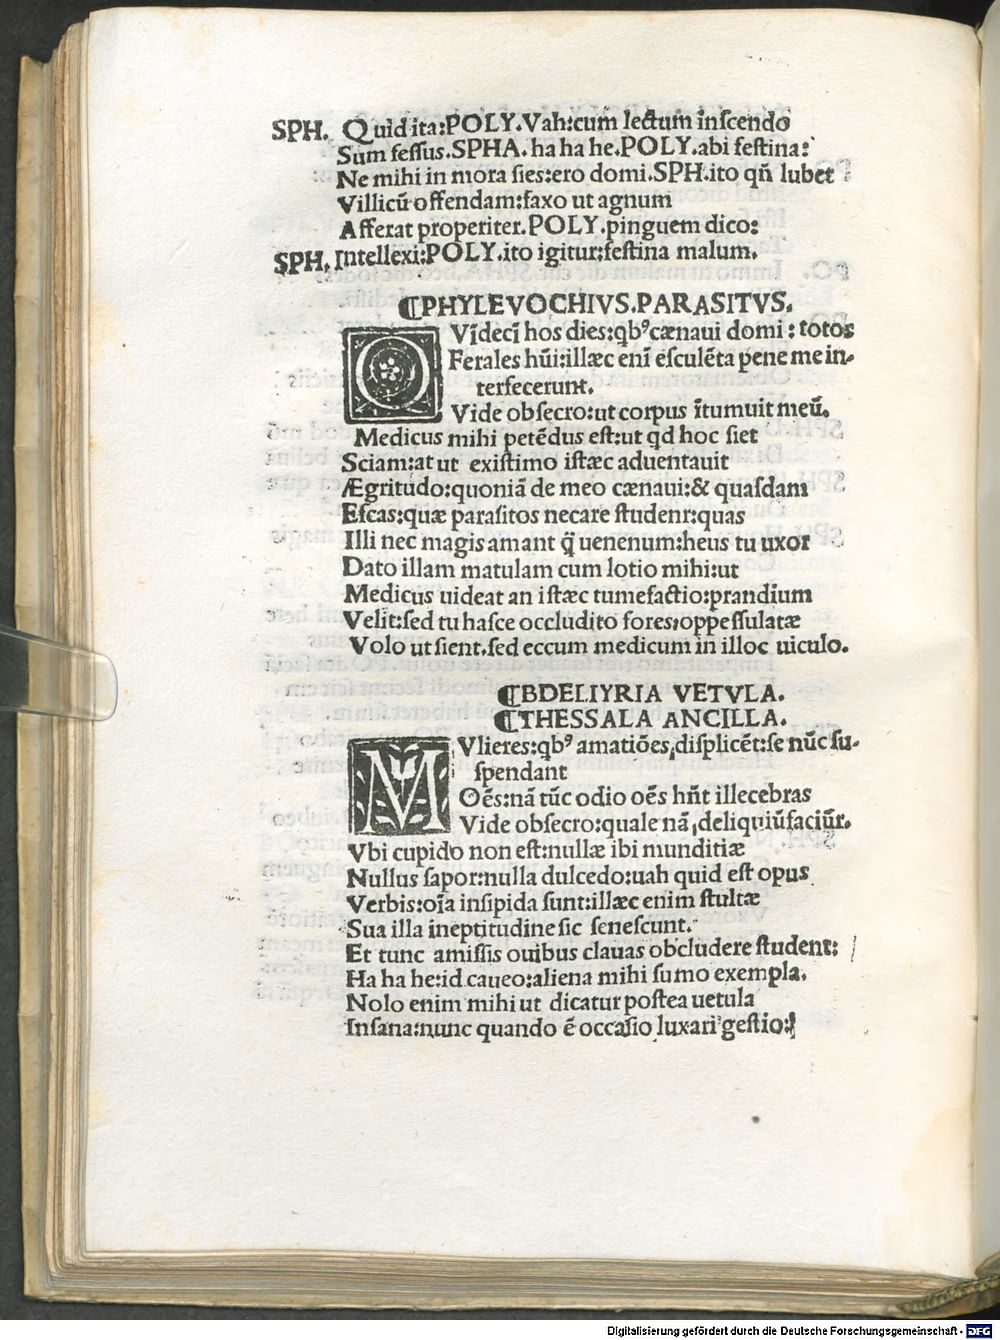 SPH. Quid ita:POLY.Vah:cum lectum inscendo
Sum fessus.SPHA. ha ha he.POLY.abi festina:
Ne mihi in mora sies:ero domi.SPH.ito qñ lubet
Villicũ offendam:faxo ut agnum
Afferat properiter.POLY.pinguem dico:
SPH. Intellexi:POLY.ito igitur:festina malum.
¶PHYLEVOCHIVS.PARASITVS.
QVĩdecĩ hos dies:qb⁹ cænaui domi: totos
Ferales hũi:illæc enĩ esculẽta pene me in-
terfecerunt.
Vide obsecro:ut corpus ĩtumuit meũ.
Medicus mihi petẽdus est:ut qd hoc siet
Sciam:at ut existimo istæc aduentauit
Ægritudo:quoniã de meo cænaui:& quasdam
Escas:quæ parasitos necare studenr:quas
Illi nec magis amant q̃ uenenum:heus tu uxor
Dato illam matulam cum lotio mihi:ut
Medicus uideat an istæc tumefactio:prandium
Velit:sed tu hasce occludito fores:oppessulatæ
Volo ut sient.sed eccum medicum in illoc uiculo.
¶BDELIYRIA VETVLA.
¶THESSALA ANCILLA.
MVlieres:qb⁹ amatiões displicẽt:se nũc su-
spendant
Oẽs:nã tũc odio oẽs hñt illecebras
Vide obsecro:quale nã deliquiũ faciũt.
Vbi cupido non est:nullæ ibi munditiæ
Nullus sapor:nulla dulcedo:uah quid est opus
Verbis:oĩa insipida sunt:illæc enim stultæ
Sua illa ineptitudine sic senescunt.
Et tunc amissis ouibus clauas obcludere student:
Ha ha he:id caueo:aliena mihi sumo exempla.
Nolo enim mihi ut dicatur postea uetula
Insana:nunc quando ẽ occasio luxari gestio:
Digitalisierung gefördert durch die Deutsche Forschungsgemeinschaft - DFG